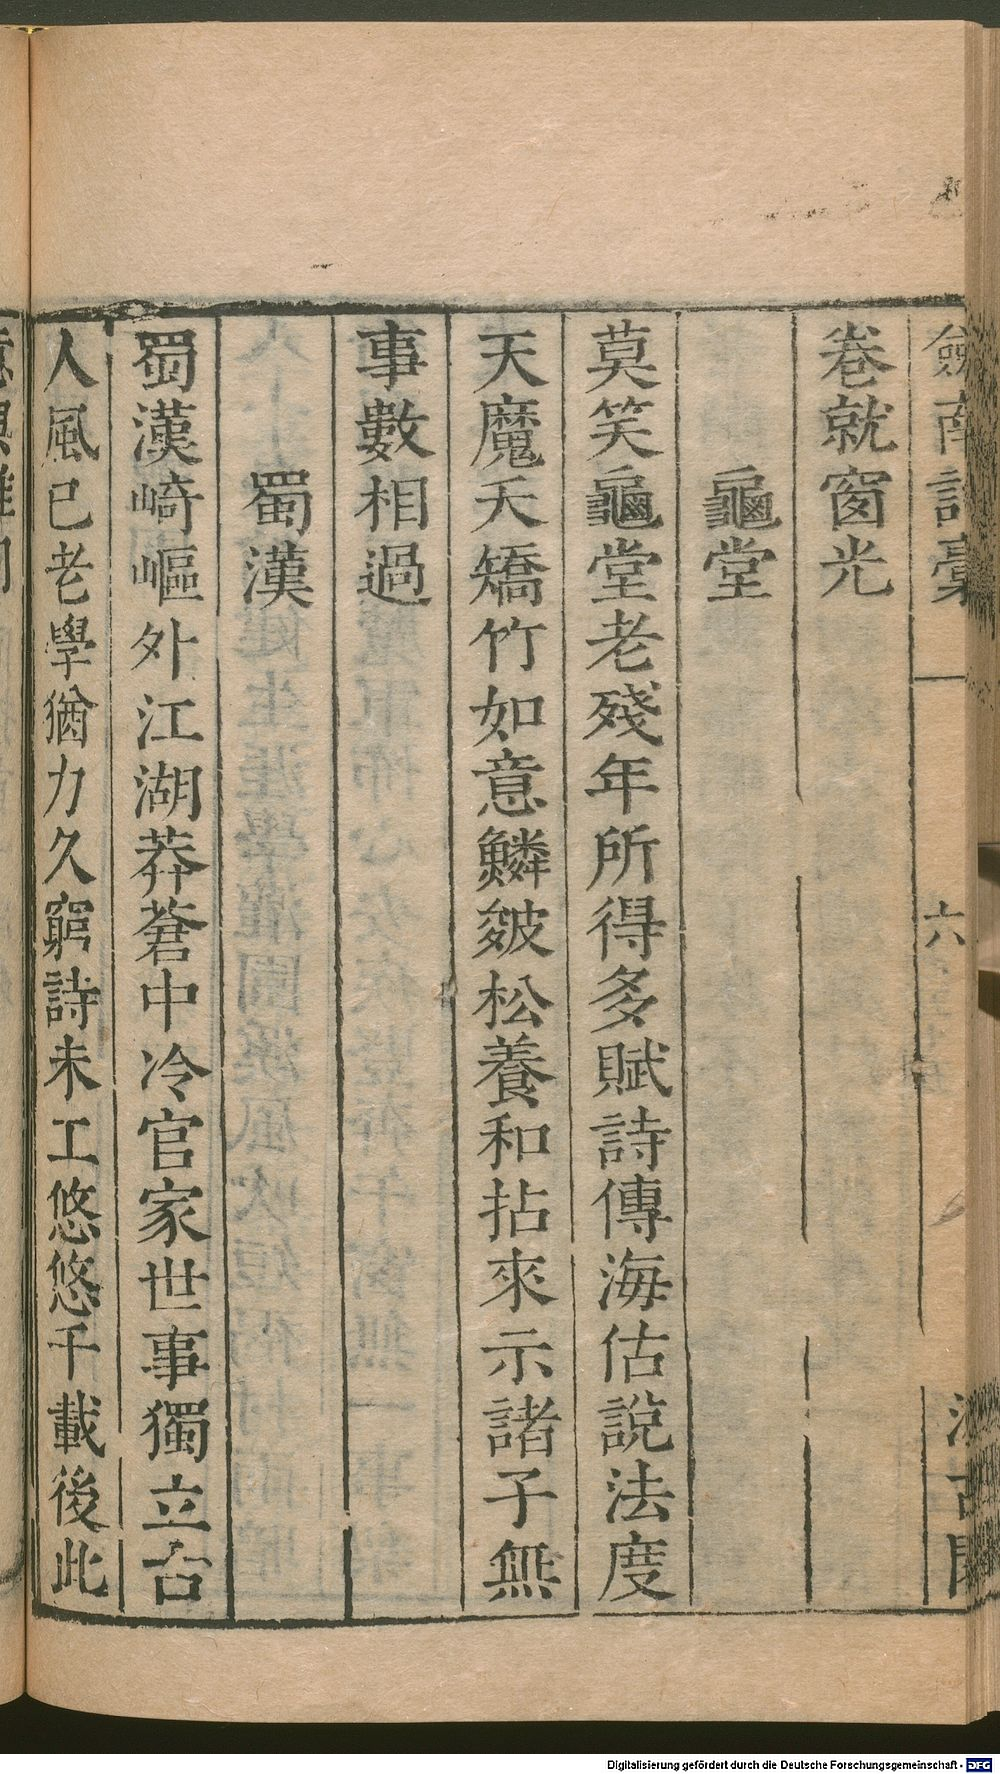 劔南詩稾 六
卷就窗光
龜堂
莫笑龜堂老殘年所得多賦詩傳海估說法度
天魔夭矯竹如意鱗皴松養和拈來示諸子無
事數相過
蜀漢
蜀漢崎嶇外江湖莽蒼中冷官家世事獨立古
人風已老學猶力久窮詩未工悠悠千載後此
Digitalisierung gefördert durch die Deutsche Forschungsgemeinschaft - DFG